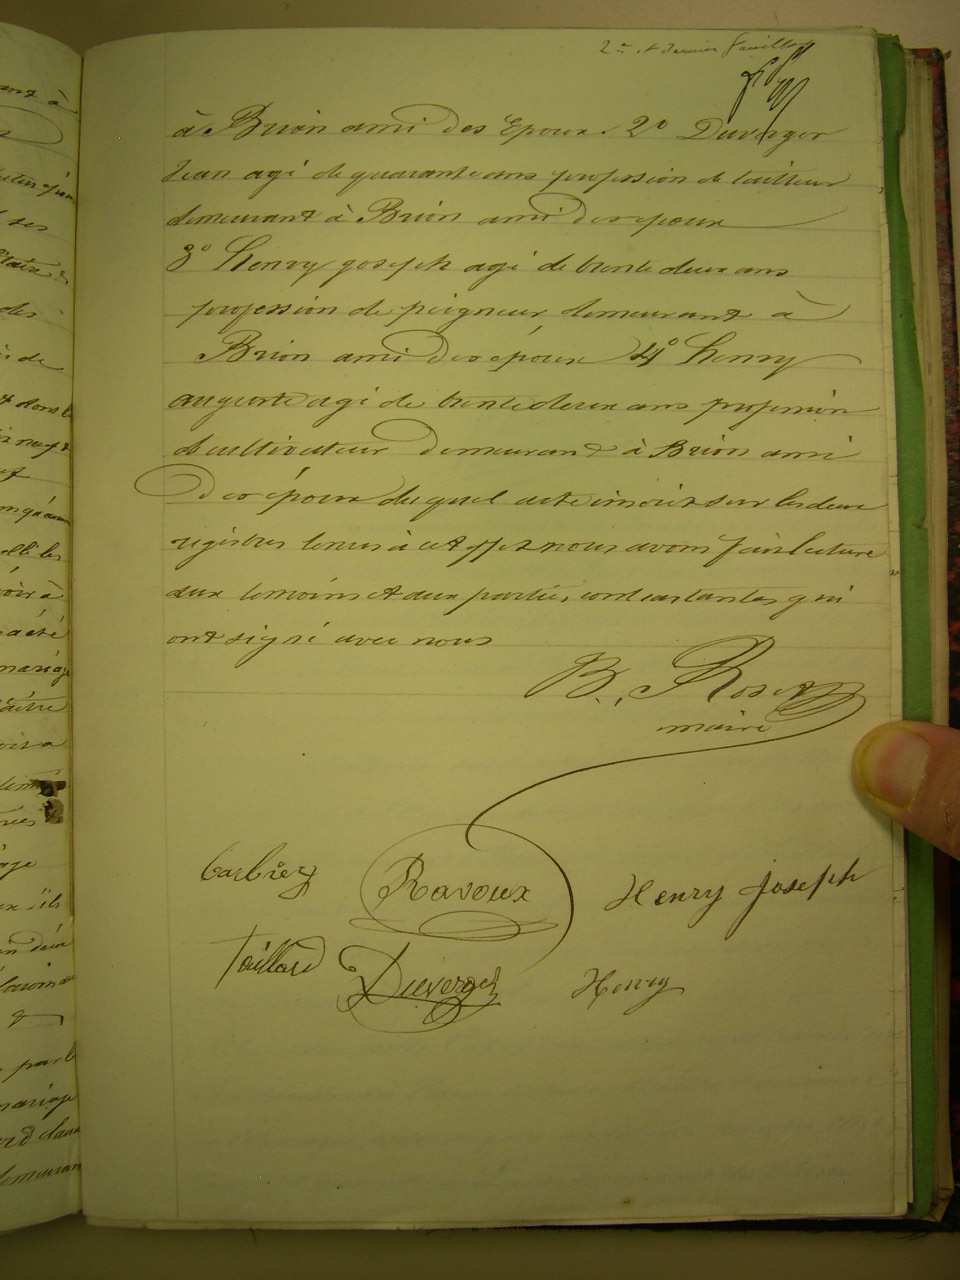 2me et dernier feuillet
à Brion ami des Epoux. 2o Duverger
Jean agé de quarante ans profession de tailleur
demeurant à Brion ami des epoux
3o henry joseph agé de trente deux ans
profession de peigneur demeurant à
Brion ami des époux 4o henry
auguste agé de trente deux ans profession
de cultivateur demeurant à Brion ami
des époux duquel acte inscrit sur les deux
régistres tenus à cet effet nous avons fait lecture
aux temoins et aux parties contractantes qui
ont signé avec nous
B. Roset
maire
barbier Ravoux Henry joseph
Taillard Duverger Henry